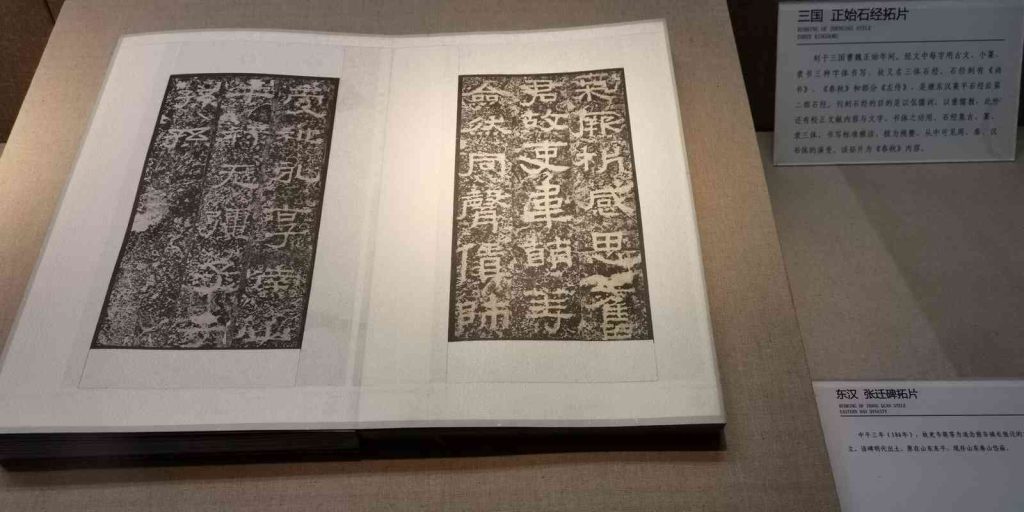 气厥析感思舊
君故吏韋萌等
僉然同聲賃師
受祉永享南山
干祿无疆子子
孫孫
三国 正始石经拓片
RUBBING OF ZHENGSHI STELE
THREE KINGDOMS
刻于三国曹魏正始年间，经文中每字用古文、小篆、
隶书三种字体书写，故又名三体石经，石经刻有《尚
书》、《春秋》和部分《左传》，是继东汉熹平石经后第
二部石经。刊刻石经的目的是以弘儒训，以重儒教，此外
还有校正文献内容与文字、书体之功用。石经集古、篆、
隶三体，书写标准雅洁，极为规整，从中可见周、秦、汉
书体的演变。该拓片为《春秋》内容。
东汉 张迁碑拓片
RUBBING OF ZHANG QIAN STELE
EASTERN HAN DYNASTY
中平三年（186年），故吏韦萌等为追念谷城长张迁的
文。该碑明代出土，原在山东东平，现存山东泰山岱庙。